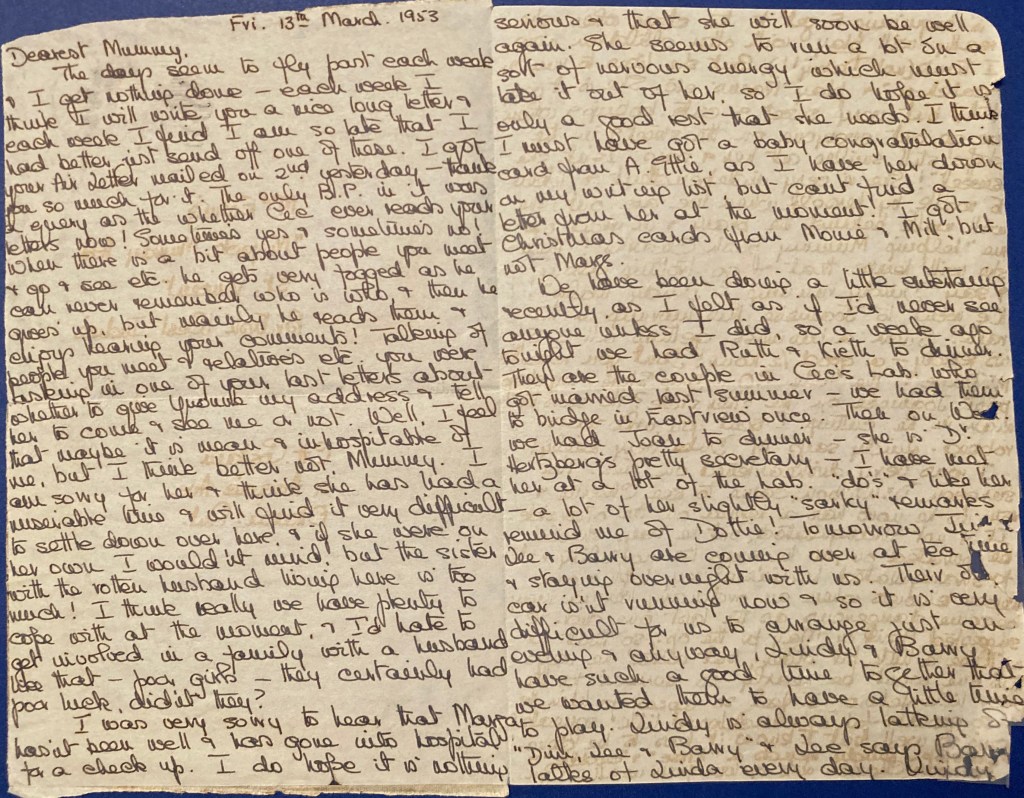 Fri. 13th March. 1953
Dearest Mummy,
The days seem to fly past each week
& I get nothing done – each week I
think I will write you a nice long letter &
each week I find I am so late that I
had better just send off one of these. I got
your Air Letter mailed on 2nd yesterday – thank
you so much for it. The only B.P. in it was
a query as the whether Cec ever reads your
letters now! Sometimes yes & sometimes no!
When there is a bit about people you meet
& go & see etc. he gets very fogged as he
can never remember who is who, & then he
gives up, but mainly he reads them &
enjoys hearing your comments! Talking of
people you meet & relatives etc. you were
asking in one of your last letters about
whether to give my address & tell
her to come & see me or not. Well, I feel
that maybe it is mean & inhospitable of
me, but I think better not, Mummy. I
am sorry for her & think she has had a
miserable time & will find it very difficult
to settle down over here, & if she were on
her own I wouldn't mind, but the sister
with the rotten husband living here is too
much! I think really we have plenty to
cope with at the moment, & I'd hate to
get involved in a family with a husband
like that – poor girls – they certainly had
poor luck, didn't they?
I was very sorry to hear that
hasn't been well & has gone into hospital
for a check up. I do hope it is nothing
serious & that she will soon be well
again. She seems to run a lot on a
sort of nervous energy which must
take it out of her, so I do hope it is
only a good rest that she needs. I think
I must have got a baby congratulation
card from A. Ettie, as I have her down
on my writing list, but can't find a
letter from her at the moment! I got
Christmas cards from & Mill but
not Marg.
We have been doing a little entertaining
recently, as I felt as if I'd never see
anyone unless I did, so a week ago
tonight we had Ruth & Kieth to dinner.
They are the couple in Cec's Lab. who
got married last summer – we had them
to bridge in Eastview once. Then on Wed
we had Joan to dinner – she is Dr.
Hertzberg's pretty secretary – I have met
her at a lot of the Lab. "do's" & like her
– a lot of her slightly "sarky" remarks
remind me of Dottie! Tomorrow &
Lee & Barry are coming over at tea time
& staying overnight with us. Their
car isn't running now & so it is very
difficult for us to arrange just an
evening & anyway, Lindy & Barry
have such a good time together that
we wanted them to have a little time
to play. Lindy is always talking of
Lee & Barry" & Lee says Barry
talks of Linda every day. Lindy